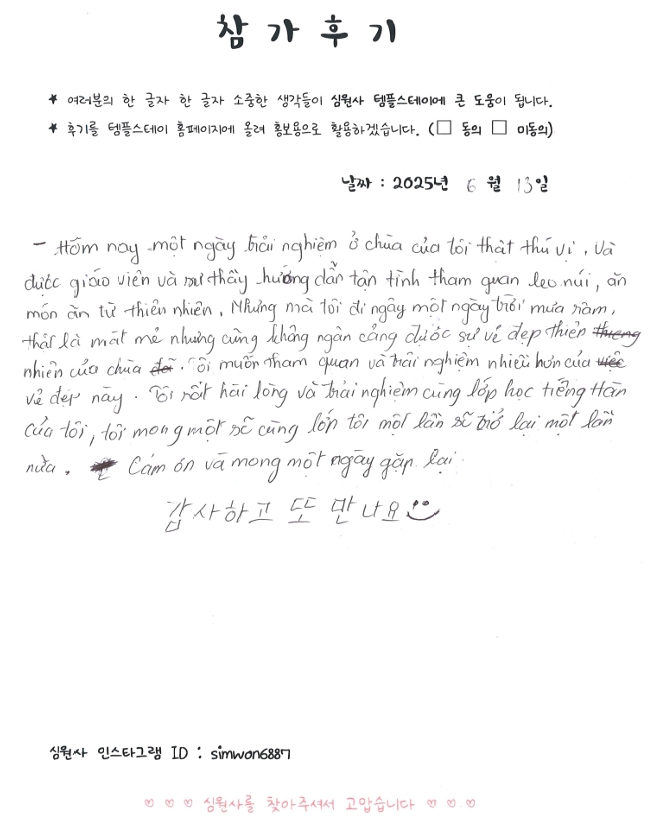 참가후기
★ 여러분의 한 글자 한 글자 소중한 생각들이 심원사 템플스테이에 큰 도움이 됩니다.
★ 후기를 템플스테이 홈페이지에 올려 홍보용으로 활용하겠습니다. (□ 동의 □ 미동의)
날짜 : 2025년 6 월 13일
– Hôm nay một ngày trải nghiệm ở chùa của tôi thật thú vị, và
được giáo viên và sư thầy hướng dẫn tận tình tham quan leo núi, ăn
món ăn từ thiên nhiên, Nhưng mà tôi đi ngày một ngày trời mưa rằm,
thật là mát mẻ nhưng cũng không ngăn cảng được sự vẻ đẹp thiên
nhiên của chùa. Tôi muốn tham quan và trải nghiệm nhiều hơn của
vẻ đẹp này. Tôi rất hài lòng và trải nghiệm cùng lớp học tiếng Hàn
của tôi, tôi mong một sẽ cùng lớp tôi một lần sẽ trở lại một lần
nữa. Cám ơn và mong một ngày gặp lại
감사하고 또 만나요
심원사 인스타그램 ID : simwon6887
♡ ♡ ♡ 심원사를 찾아주셔서 고맙습니다 ♡ ♡ ♡